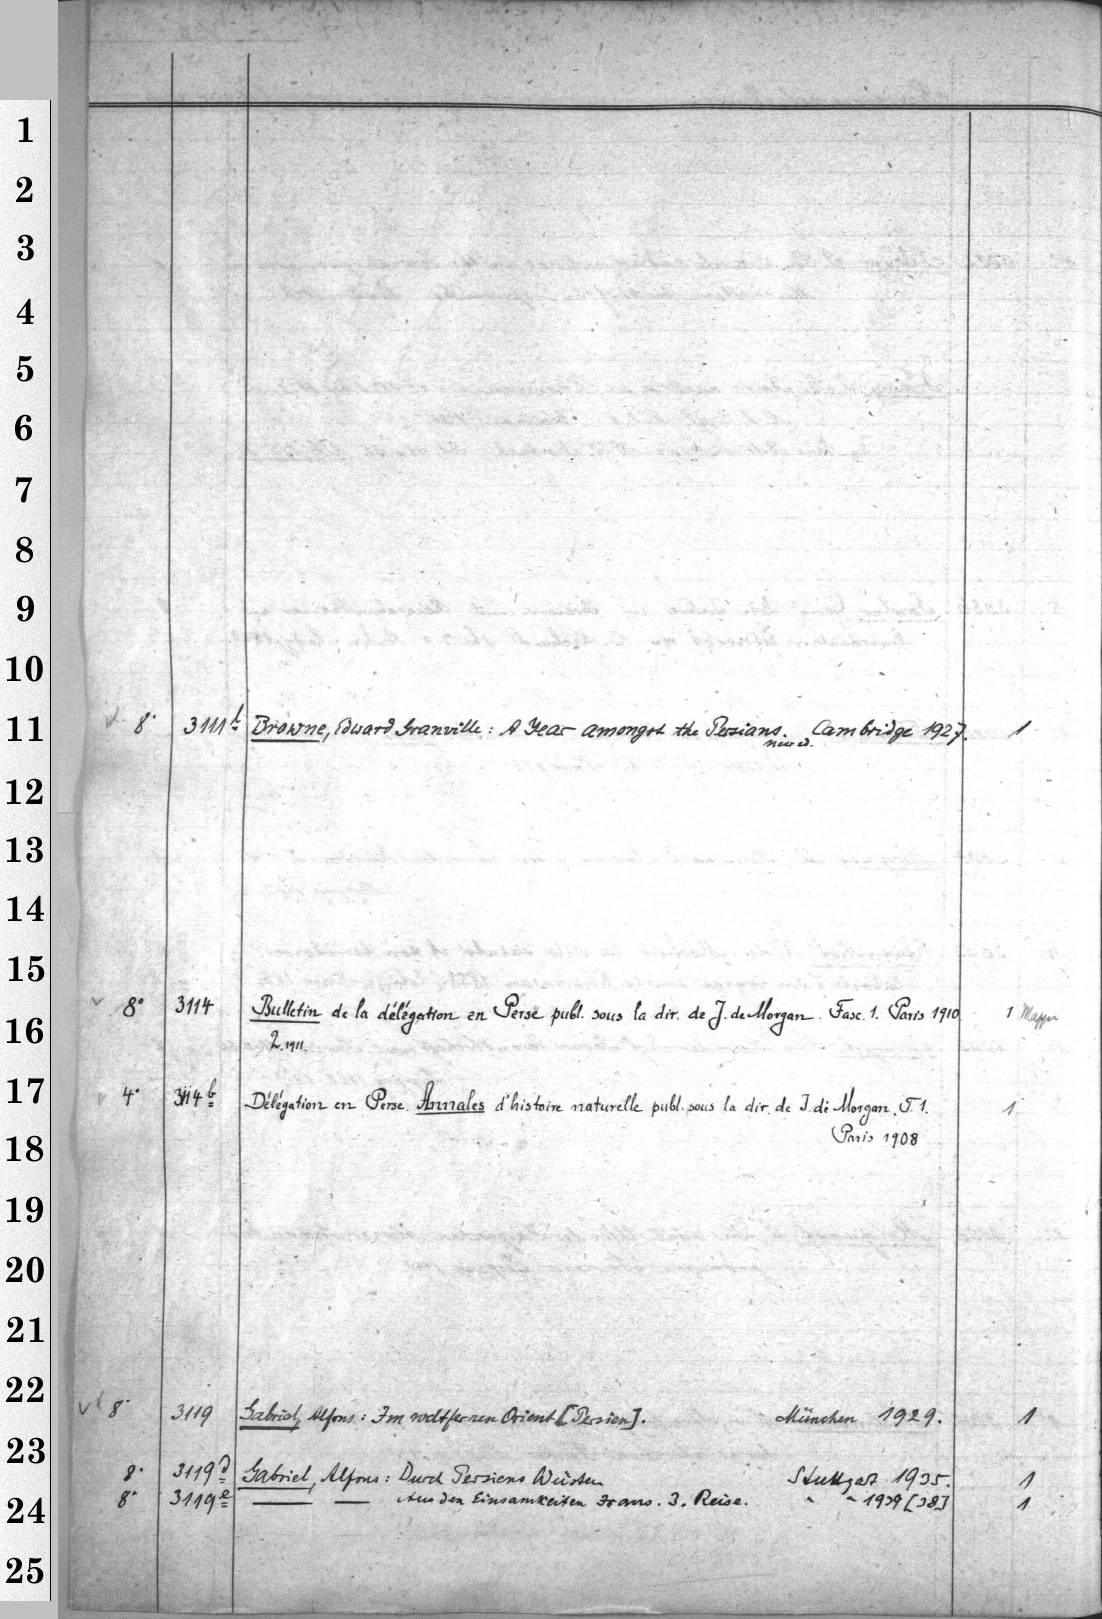 1
2
3
4
5
6
7
8
9
10
11
12
13
14
15
16
17
18
19
20
21
22
23
24
25
8° 3111 b Browne, Edward Granville: A Year amongst the Persians. Cambridge 1927. 1
new ed.
8° 3114 Bulletin de la délégation en Perse publ. sous la dir. de J. de Morgan. Fasc. 1. Paris 1910 1 Mappe
2. 1911.
4° 3114 b Délégation en Perse. Annales d'histoire naturelle publ. sous la dir. de J. de Morgan. T. 1. 1
Paris 1908
8° 3119 Gabriel, Alfons: Im weltfernen Orient [Persien]. München 1929. 1
8° 3119 d Gabriel, Alfons: Durch Persiens Wüsten Stuttgart 1935. 1
8° 3119 e — — Aus den Einsamkeiten Irans. 3. Reise. " " 1939 [38] 1